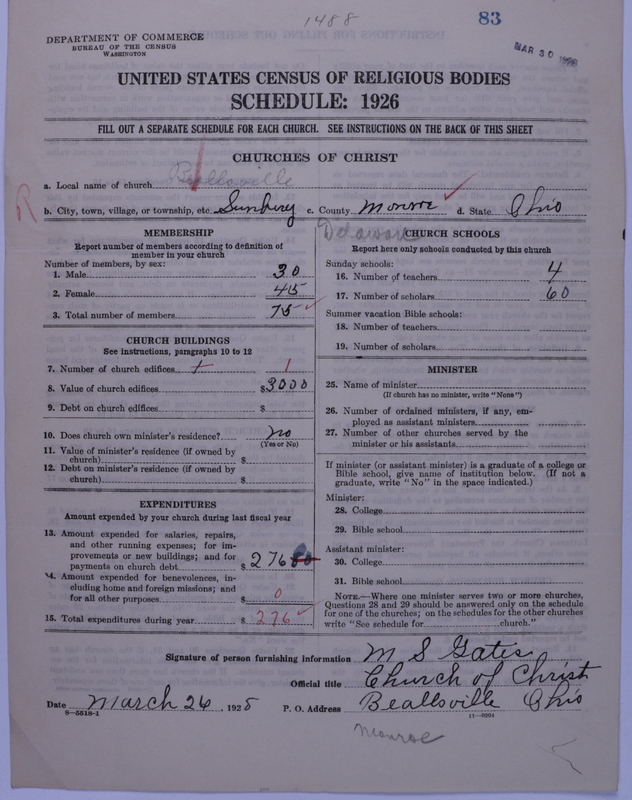 1488
83
DEPARTMENT OF COMMERCE
BUREAU OF THE CENSUS
WASHINGTON
MAR 30
UNITED STATES CENSUS OF RELIGIOUS BODIES
SCHEDULE: 1926
FILL OUT A SEPARATE SCHEDULE FOR EACH CHURCH. SEE INSTRUCTIONS ON THE BACK OF THIS SHEET
CHURCHES OF CHRIST
a. Local name of church Beallsville
R
b. City, town, village, or township, etc. Sunbury c. County Monroe d. State Ohio
Delaware
MEMBERSHIP
Report number of members according to definition of
member in your church
Number of members, by sex:
1. Male 30
2. Female 45
3. Total number of members 75
CHURCH BUILDINGS
See instructions, paragraphs 10 to 12
7. Number of church edifices 1 1
8. Value of church edifices $3000
9. Debt on church edifices $
10. Does church own minister's residence? no
(Yes or No)
11. Value of minister's residence (if owned by
church) $
12. Debt on minister's residence (if owned by
church) $
EXPENDITURES
Amount expended by your church during last fiscal year
13. Amount expended for salaries, repairs,
and other running expenses; for im-
provements or new buildings; and for
payments on church debt $ 276
14. Amount expended for benevolences, in-
cluding home and foreign missions; and
for all other purposes $ 0
15. Total expenditures during year $ 276
CHURCH SCHOOLS
Report here only schools conducted by this church
Sunday schools:
16. Number of teachers 4
17. Number of scholars 60
Summer vacation Bible schools:
18. Number of teachers
19. Number of scholars
MINISTER
25. Name of minister
(If church has no minister, write "None")
26. Number of ordained ministers, if any, em-
ployed as assistant ministers
27. Number of other churches served by the
minister or his assistants
If minister (or assistant minister) is a graduate of a college or
Bible school, give name of institution below. (If not a
graduate, write "No" in the space indicated.)
Minister:
28. College
29. Bible school
Assistant minister:
30. College
31. Bible school
NOTE.—Where one minister serves two or more churches,
Questions 28 and 29 should be answered only on the schedule
for one of the churches; on the schedules for the other churches
write "See schedule for church."
Signature of person furnishing information M S Gates
Official title Church of Christ
Date March 26, 1928 P. O. Address Beallsville Ohio
8—5518-1
11—9204
Monroe